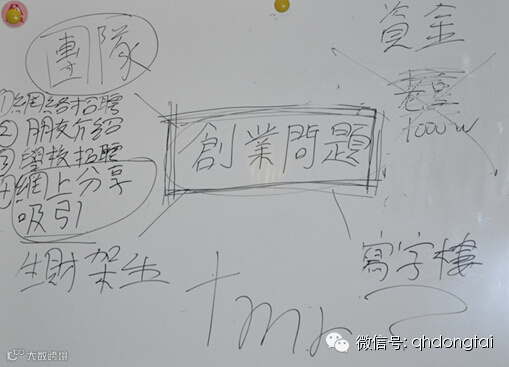 團隊
①網絡招聘
②朋友介紹
③學校招聘
④網上分享
吸引
創業問題
資金
老豆
1000w
生財架生
寫字樓
微信号: qhdongtai
大数跨境